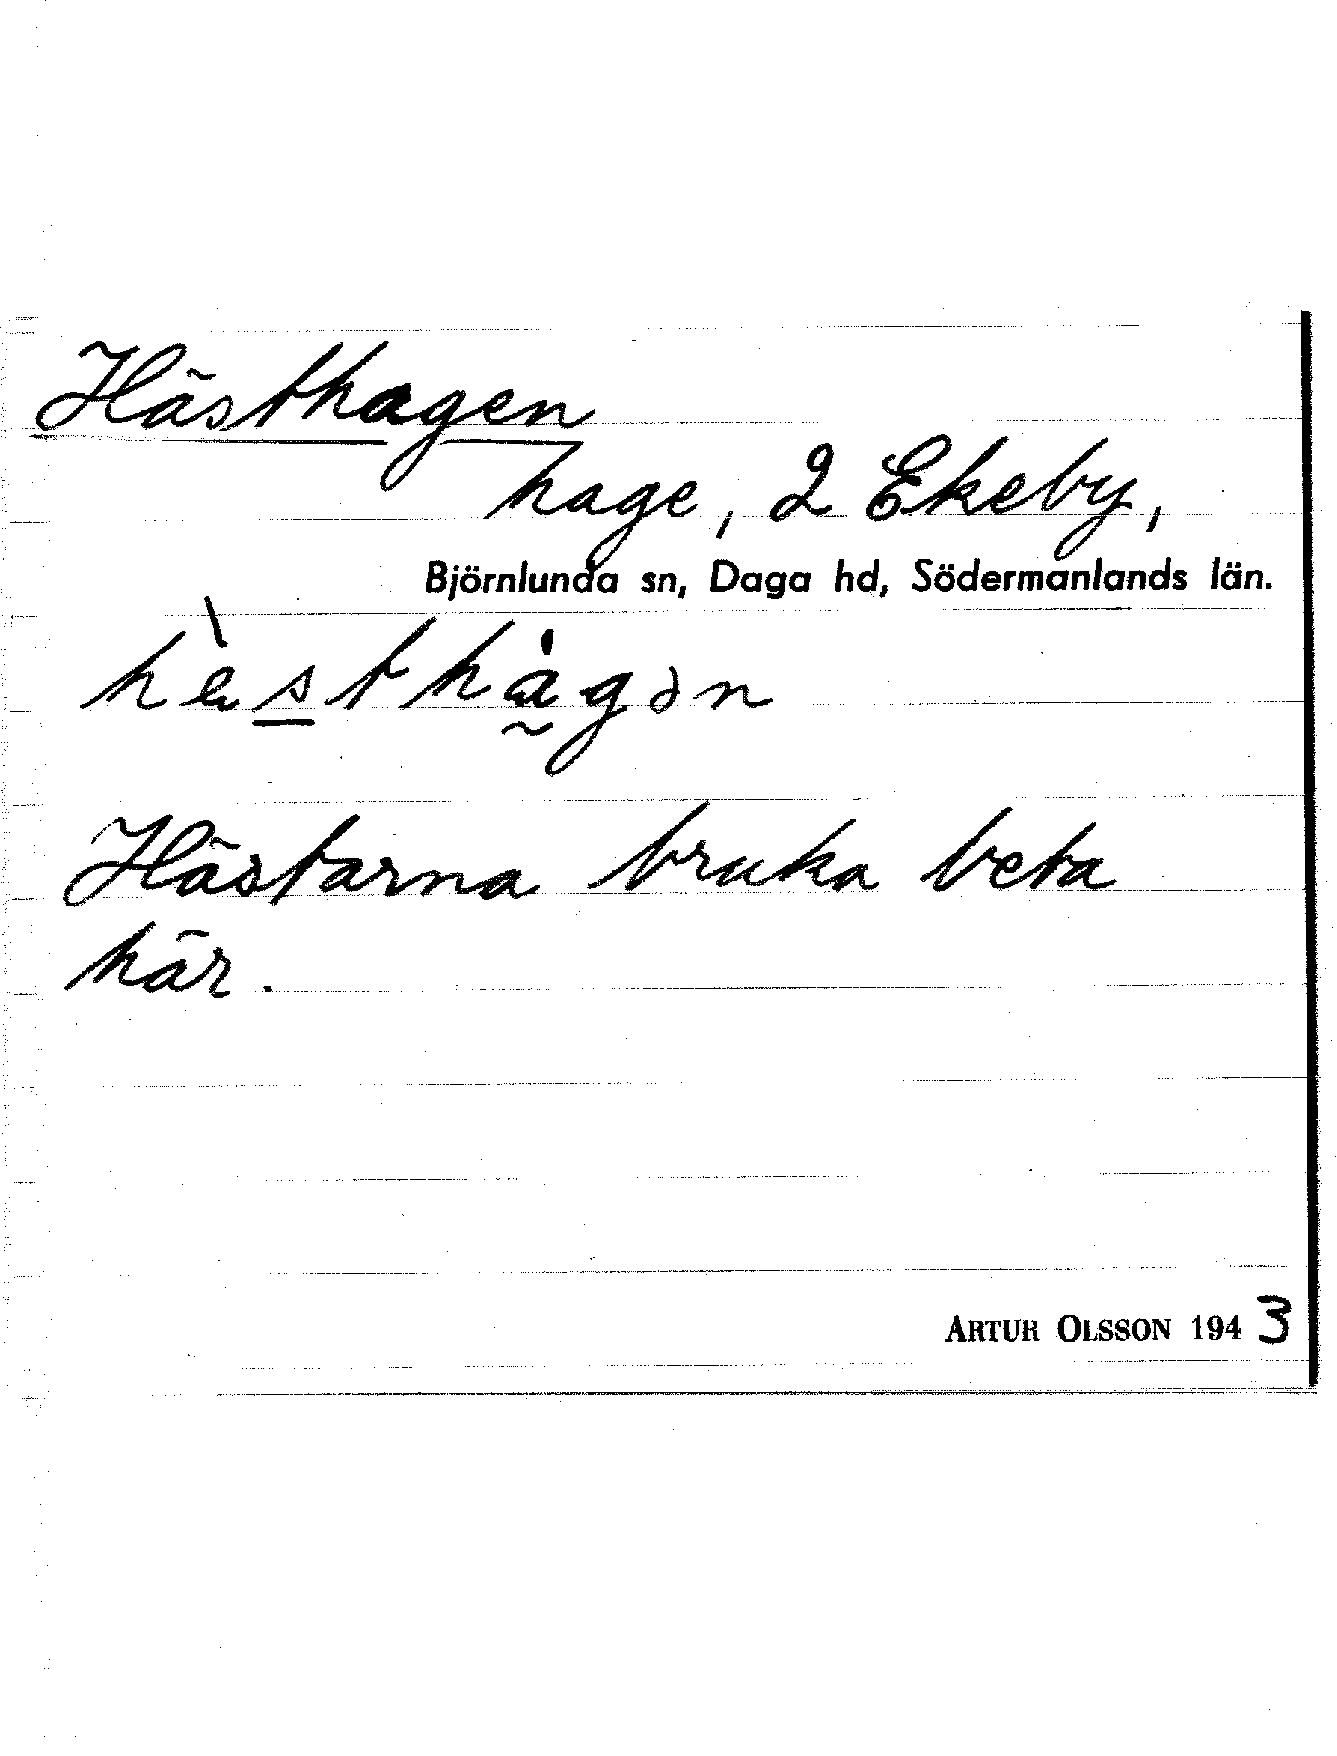 Hästhagen
hage, 2 Ekeby,
Björnlunda sn, Daga hd, Södermanlands län.
hàsthågən
Hästarna bruka beta
här.
ARTUR OLSSON 1943